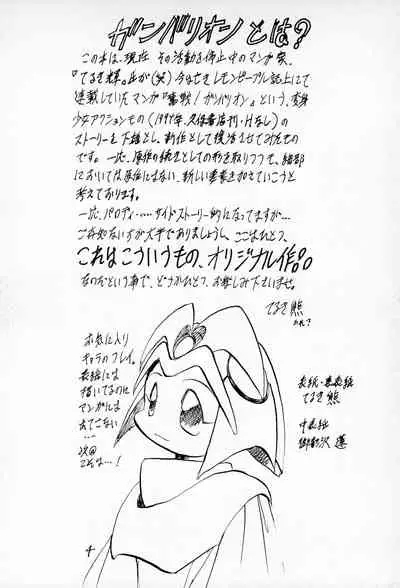 ガンバリオンとは?
この本は、現在 その活動を停止中のマンガ家、
『てるき輝』氏が(笑)今は亡きレモンピープル誌上にて
連載していたマンガ『奮戦!ガンバリオン』という、変身
少女アクションもの(1997年、久保書店刊・Hなし)の
ストーリーを下敷とし、新作として復活させてみたもの
です。一応、原作の続きとしての形を取りつつも、細部
においては原作にはない、新しい要素を加えていこうと
考えております。
一応、パロディ……サイドストーリー的になってますが…
ご存知ない方が大半でありましょうし、ここはひとつ、
これはこういうもの、オリジナル作品。
なのだという事で、どうかひとつ、お楽しみ下さいませ。
てるき熊
お気に入り
キャラのフレイ。
表紙には
描いてるのに
マンガには
出てこない
…
次回
こそは…!
表紙・裏表紙
てるき熊
中表紙
御彩沢 蓮
4